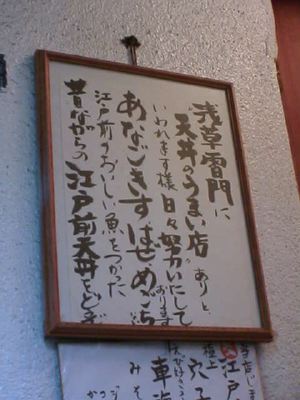 浅草雷門に
天丼のうまい店ありと
いわれます様日々努力いたして
おります
あなごきすはぜめごち
江戸前のおいしい魚をつかった
昔ながらの江戸前天丼をどうぞ
江戸
極上
穴子
車海
みそ